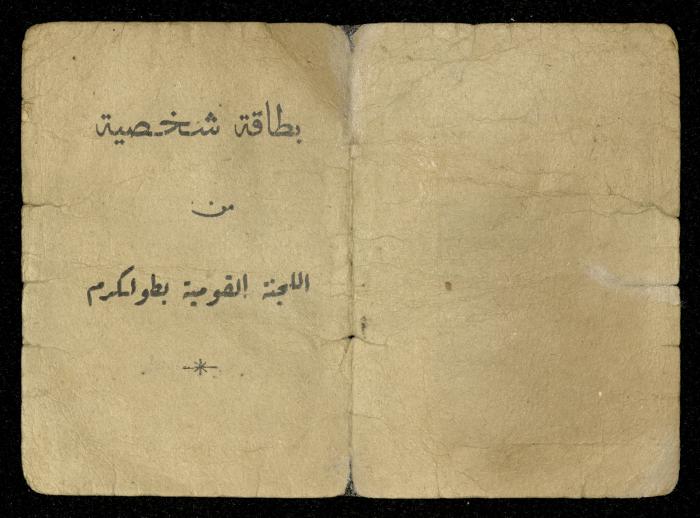 بطاقة شخصية
من
اللجنة القومية بطولكرم